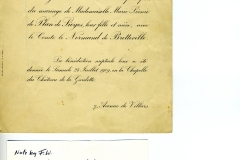 du mariage de Mademoiselle Marie Louise
de Plan de Sieyes, leur fille et nièce, avec
le Comte le Normand de Bretteville
La bénédiction nuptiale leur a été
donnée le Samedi 24 Juillet 1909 en la Chapelle
du Château de la Goulette
7, Avenue de Villiers
Note by F.W.